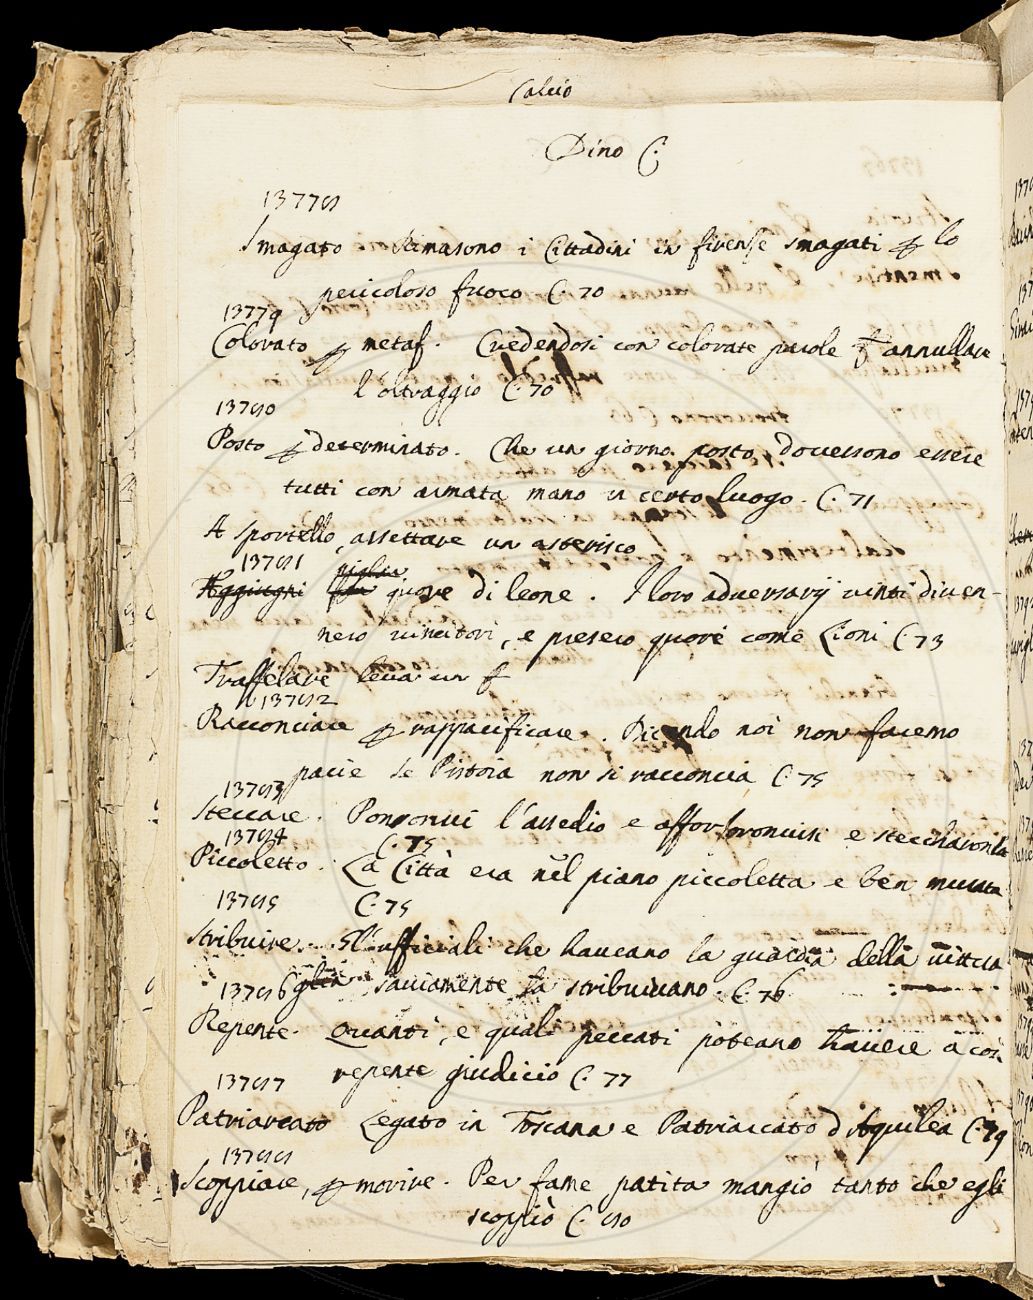 Calcio
Dino C.
13778
Smagato Rimasono i Cittadini in firenſe smagati ꝑ lo
pericoloso fuoco C. 70
13779
Colorato ꝑ metaf. Credendosi con colorate parole annullare
l'oltraggio C. 70
13780
Posto ꝑ determinato. Che un giorno posto dovessono essere
tutti con armata mano in certo luogo. C. 71
A sportello, assettare un asterisco
13781
Aggiugni piglia quore di leone. I loro adversarij vinti diven-
nero vincitori, e presero quore come Lioni C. 73
Traffelare leva un f
13782
Racconciare ꝑ rappacificare. Dicendo noi non facemo
pacie se Pistoia non si racconcia C. 75
13783
Steccare. Ponvi l'assedio e affor e stecchavonla
C. 75
13784
Piccoletto. La Città era nel piano piccoletta e ben murata
C. 75
13785
Stribuire. Gl'ufficiali che haveano la guardia della vittia
glia saviamente la stribuivano. C. 76
13786
Repente. Quanti, e quali peccati poteano havere a cosi
repente giudicio C. 77
13787
Patriarcato Legato in Toscana e Patriarcato d'Aquilea C. 79
13788
Scoppiare, ꝑ morire. Per fame patita mangiò tanto che egli
scoppiò C. 80